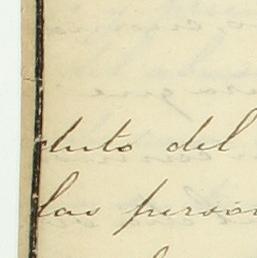 duto del
las person